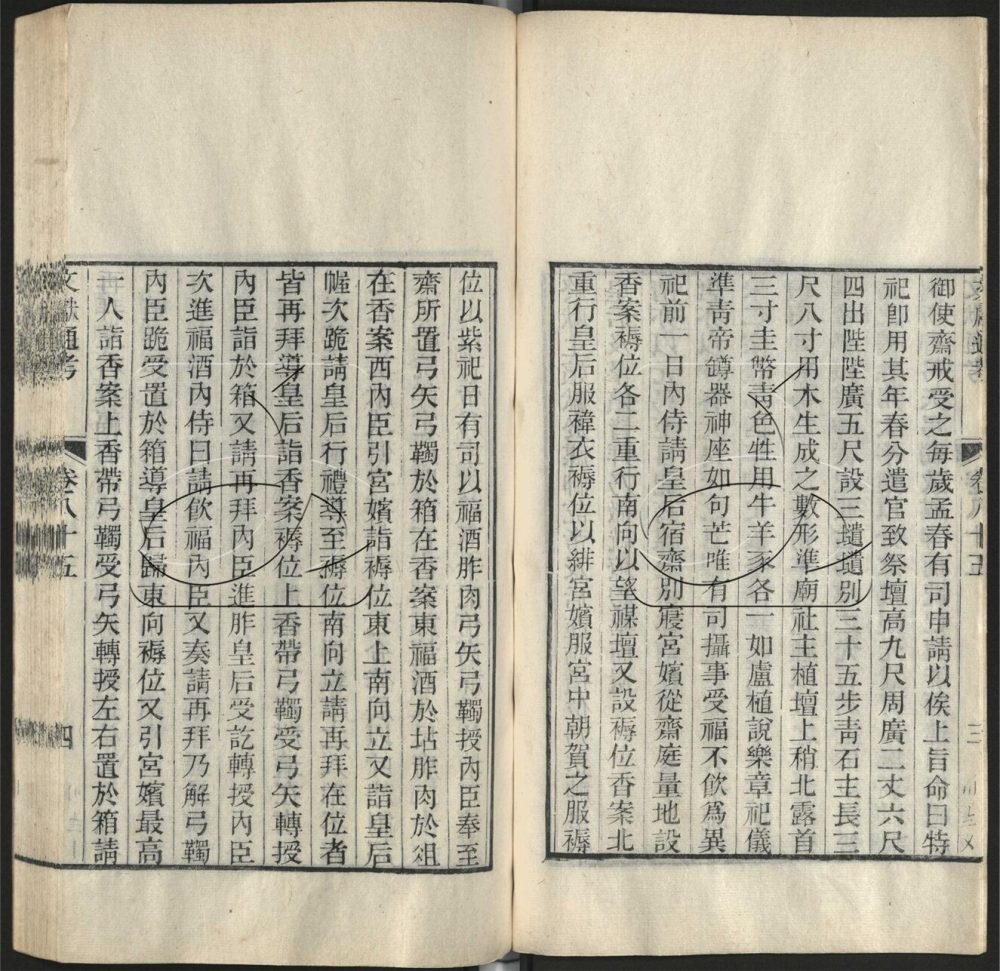 御使齋戒受之每歲孟春有司申請以俟上旨命曰特
祀卽用其年春分遣官致祭壇高九尺周廣二丈六尺
四出陛陛廣五尺設三壝壝別三十五步靑石主長三
尺八寸用木生成之數形準廟社主植壇上稍北露首
三寸圭幣靑色牲用牛羊豕各一如盧植說樂章祀儀
準靑帝罇器神座如句芒唯有司攝事受福不飮爲異
祀前一日內侍請皇后宿齋別寢宮嬪從齋庭量地設
香案褥位各二重行南向以望禖壇又設褥位香案北
重行皇后服褘衣褥位以緋宮嬪服宮中朝賀之服褥
位以紫祀日有司以福酒胙肉弓矢弓韣授內臣奉至
齋所置弓矢弓韣於箱在香案東福酒於坫胙肉於俎
在香案西內臣引宮嬪詣褥位東上南向立又詣皇后
幄次跪請皇后行禮導至褥位南向立請再拜在位者
皆再拜導皇后詣香案褥位上香帶弓韣受弓矢轉授
內臣詣於箱又請再拜內臣進胙皇后受訖轉授內臣
次進福酒內侍曰請飮福內臣又奏請再拜乃解弓韣
內臣跪受置於箱導皇后歸東向褥位又引宮嬪最高
一人詣香案上香帶弓韣受弓矢轉授左右置於箱請
文獻通考 卷八十五 四